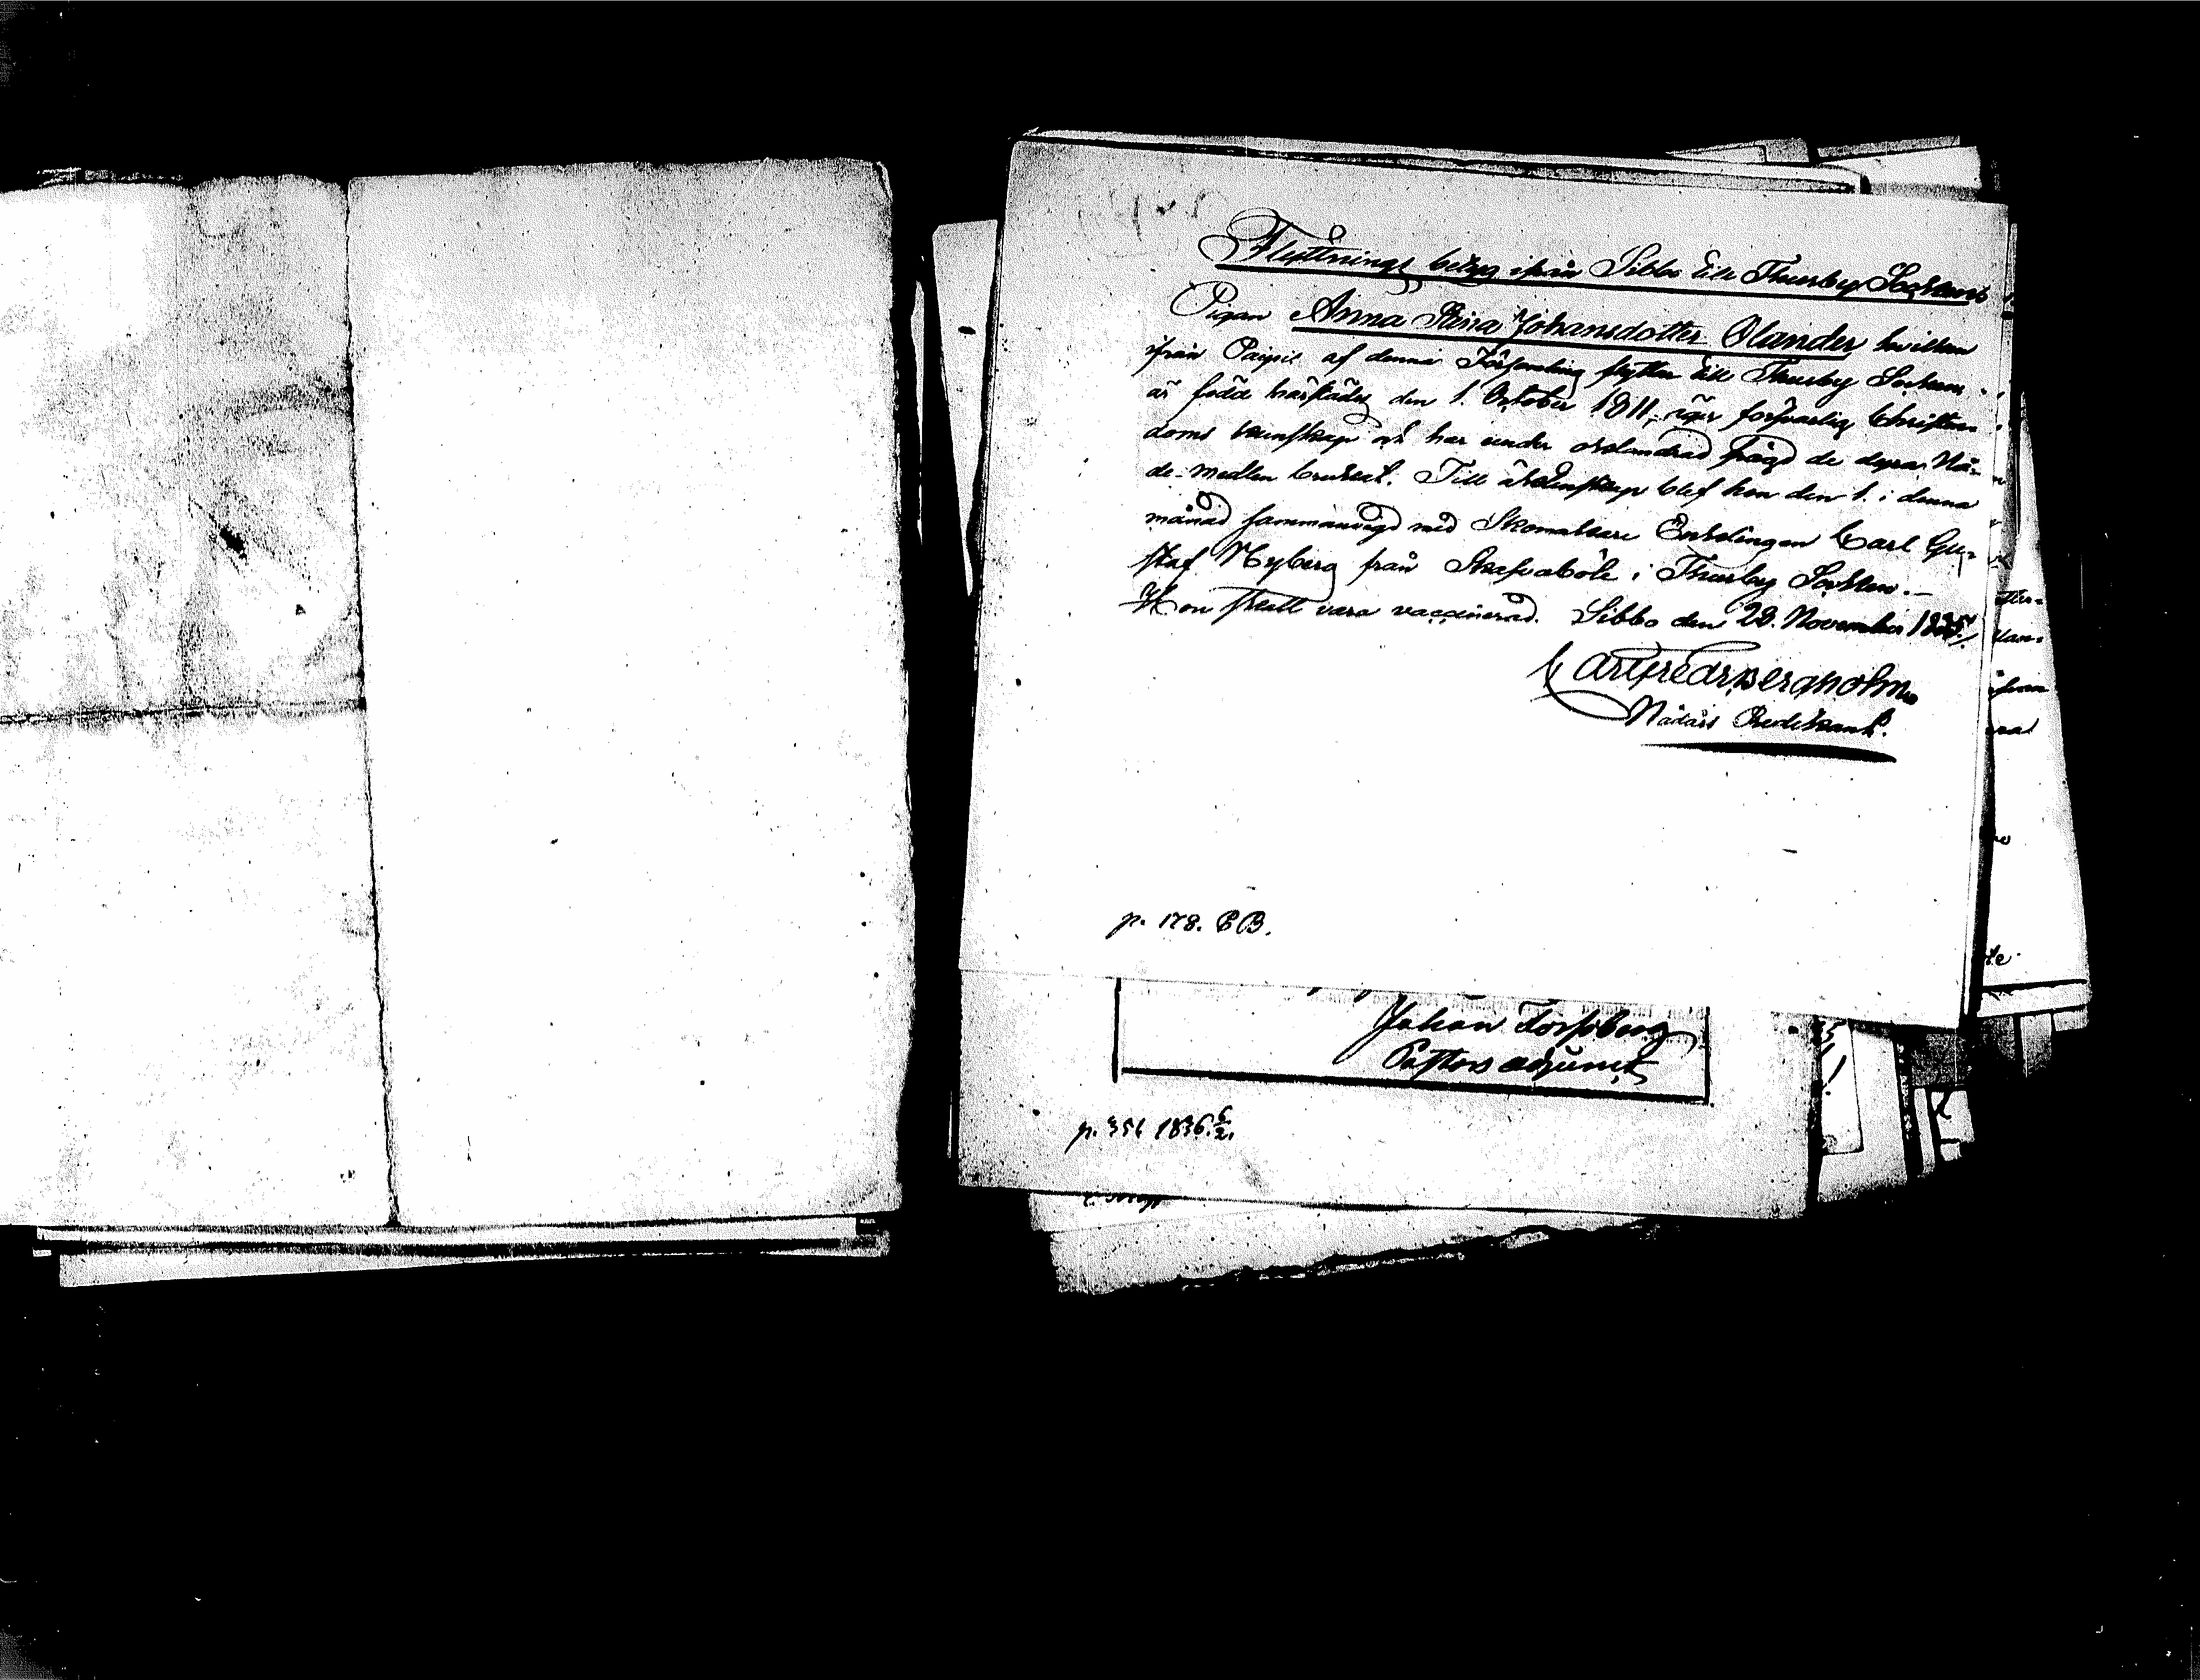 Flyttnings betyg ifrån Sibbo till Thusby Socken
Pigan Anna Stina Johansdotter Olander hvilken
ifrån Paipis af denna Församling flyttar till Thusby Socken,
är född härstädes den 1. October 1811, äger försvarlig Christen-
doms kunskap och har under oklandrad frägd de dyra Nå-
de-medlen brukat. Till äktenskap blef hon den 1. i denna
månad sammanvigd med Skomakare Enklingen Carl Gu-
staf Nyberg från Skafvaböle i Thusby Socken.—
Hon skall vara vaccinerad. Sibbo den 28. November 1835.
Carl Fredr Bergholm
Nådårs Predikant.
p. 178. BB.
Johan Forssberg
Pastors adjunct
p. 351 1836